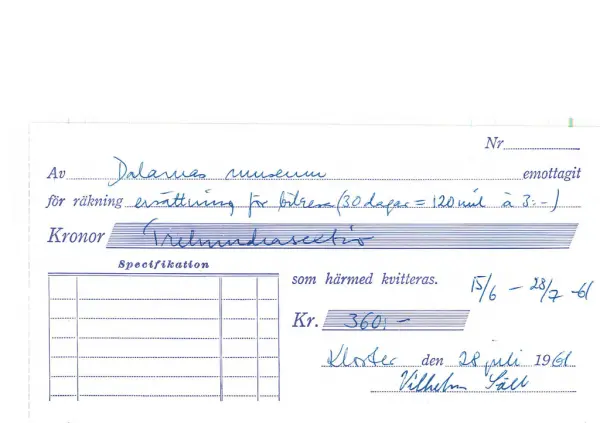 Nr
Av Dalarnas museum emottagit
för räkning ersättning för bilresa (30 dagar = 120 mil à 3:-)
Kronor Trehundrasextio
Specifikation
som härmed kvitteras. 15/6 – 28/7 -61
Kr. 360:-
Kloster den 28 juli 1961
Vilhelm Säll